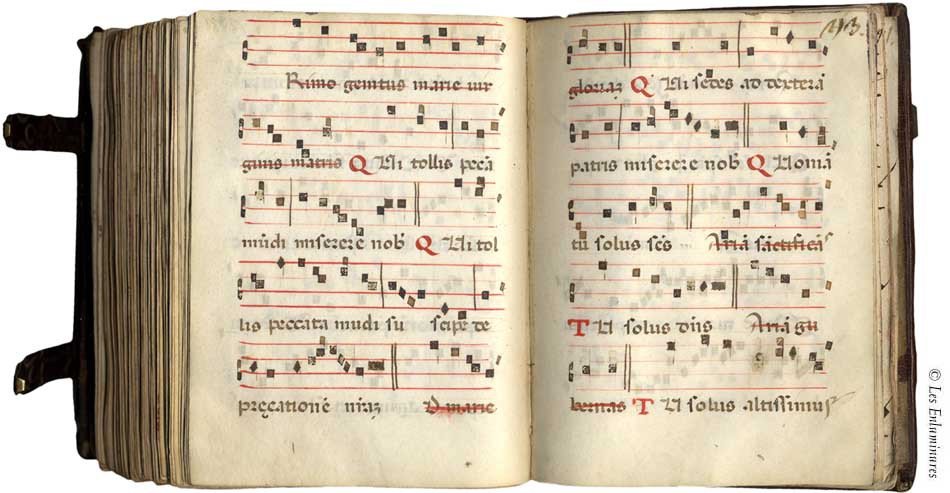 Rimo genitus marie vir
ginis matris Qui tollis pecā
mūdi miserere nob' Qui tol
lis peccata mūdi su scipe de
pręcationē nr̄aʒ D marie
43.
gloriaʒ Qui sedes ad dexterā
patris miserere nob' Quoniā
tu solus scs Mariā sāctificās
Tu solus dn̄s Mariā gu
bernas Tu solus altissimus
© Les Enluminures